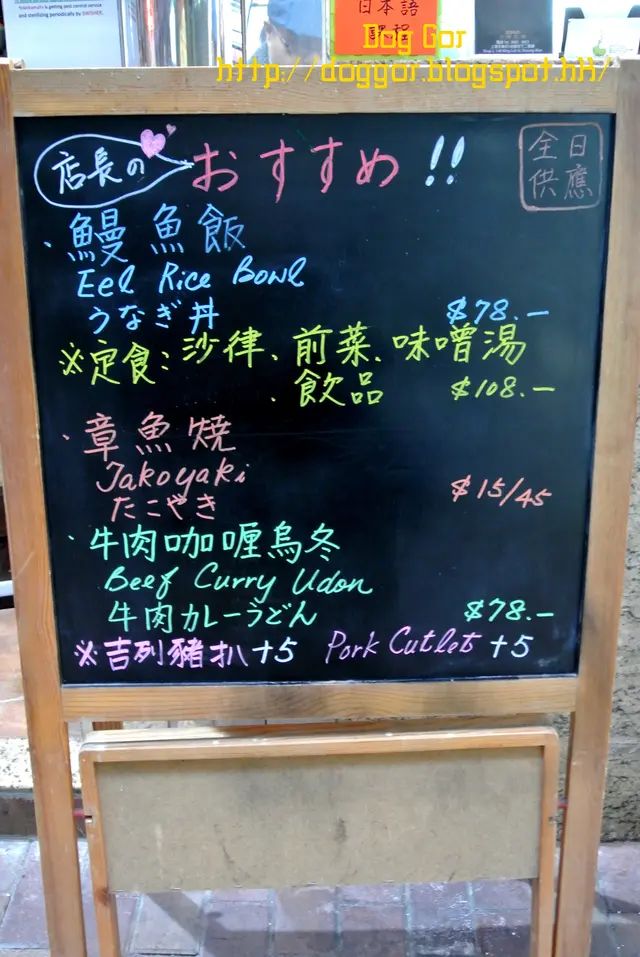 Yakitomato is getting end control service
and sterilizing periodically by SWISHER.
日本語
課程
Dog Gor
http://doggor.blogspot.hk/
店長の
おすすめ !!
全日
供應
・鰻魚飯
Eel Rice Bowl
うなぎ丼 $78.—
※定食:沙律、前菜、味噌湯
、飲品 $108.—
・章魚燒
Takoyaki
たこやき $15/45
・牛肉咖喱烏冬
Beef Curry Udon
牛肉カレーうどん $78.—
※吉列豬扒+5 Pork Cutlet +5